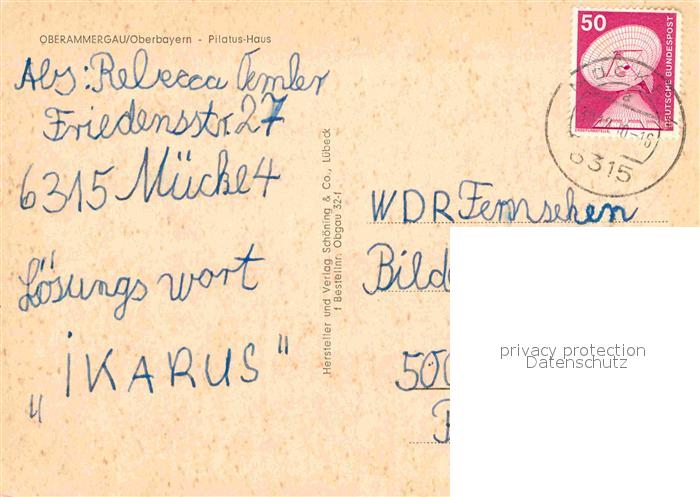 OBERAMMERGAU/Oberbayern - Pilatus-Haus
Abs: Rebecca Semler
Friedensstr. 27
6315 Mücke 4
Lösungswort
„IKARUS"
Hersteller und Verlag Schöning & Co., Lübeck
Bestellnr. Obgau 32-f
50
DEUTSCHE BUNDESPOST
6315
WDR Fernsehen
privacy protection
Datenschutz